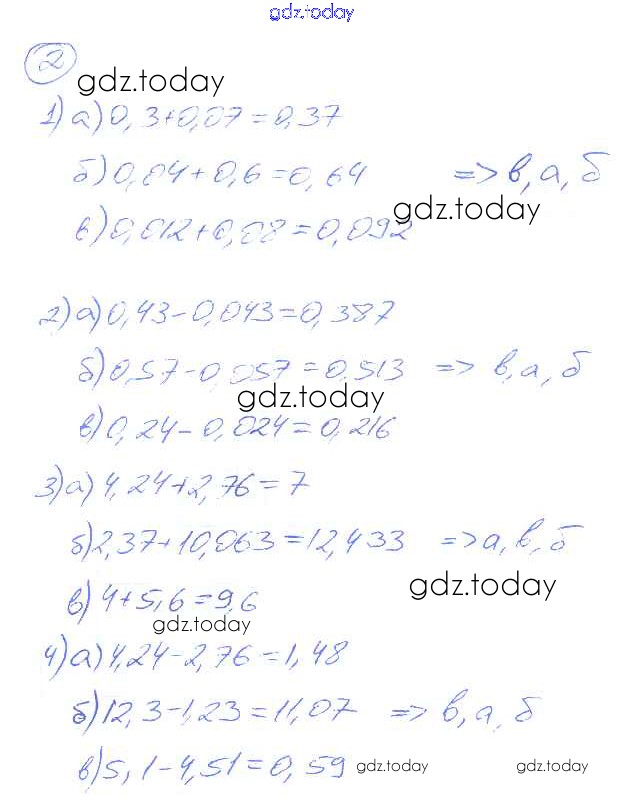 gdz.today
2
gdz.today
1) а) 0,3+0,07=0,37
б) 0,04+0,6=0,64 => в, а, б
gdz.today
в) 0,012+0,08=0,092
2) а) 0,43-0,043=0,387
б) 0,57-0,057=0,513 => в, а, б
gdz.today
в) 0,24-0,024=0,216
3) а) 4,24+2,76=7
б) 2,37+10,063=12,433 => а, в, б
gdz.today
в) 4+5,6=9,6
gdz.today
4) а) 4,24-2,76=1,48
б) 12,3-1,23=11,07 => в, а, б
в) 5,1-4,51=0,59 gdz.today gdz.today